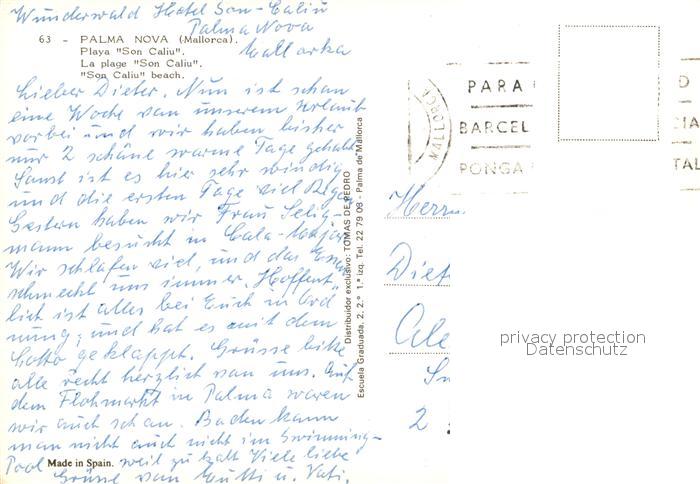 Wunderwald Hotel Son-Caliu
Palma Nova
Mallorka
63 - PALMA NOVA (Mallorca).
Playa "Son Caliu".
La plage "Son Caliu".
"Son Caliu" beach.
Lieber Dieter. Nun ist schon
eine Woche von unserem Urlaub
vorbei und wir haben bisher
nur 2 schöne warme Tage gehabt
Sonst ist es hier sehr windig
und die ersten Tage viel Regen
Gestern haben wir Frau Selig-
mann besucht in Cala-Major
Wir schlafen viel, und das Essen
schmeckt uns immer. Hoffent-
lich ist alles bei Euch in Ord
nung, und hat es mit dem
Lotto geklappt. Grüsse bitte
alle recht herzlich von uns. Auf
dem Flohmarkt in Palma waren
wir auch schon. Baden kann
man nicht auch nicht im Swimming-
Pool weil zu kalt Viele liebe
Grüsse von Mutti u. Vati.
Made in Spain.
Distribuidor exclusivo: TOMAS DE PEDRO
Escuela Graduada, 2. 2.º 1.ª izq. Tel. 22 79 08 - Palma de Mallorca
MALLORCA
PARA
BARCEL
PONGA
D
CIA
TAL
Herrn
Diet
2
privacy protection
Datenschutz